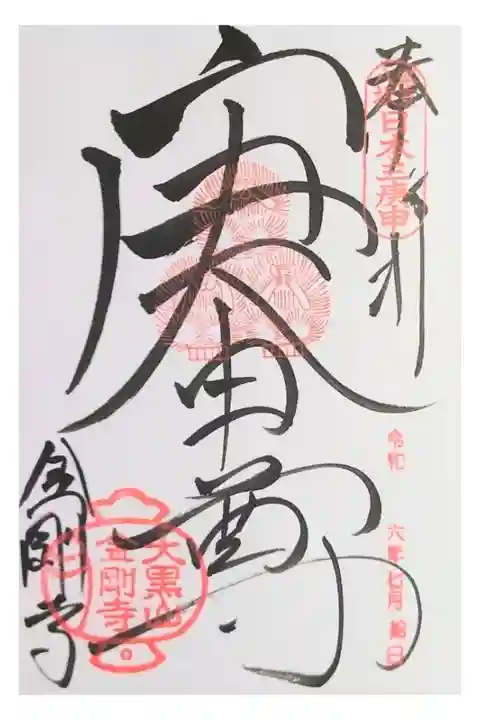 奉拝
日本三庚申
庚申尊
令和 六年 七月 吉日
大黒山
金剛寺
金剛寺